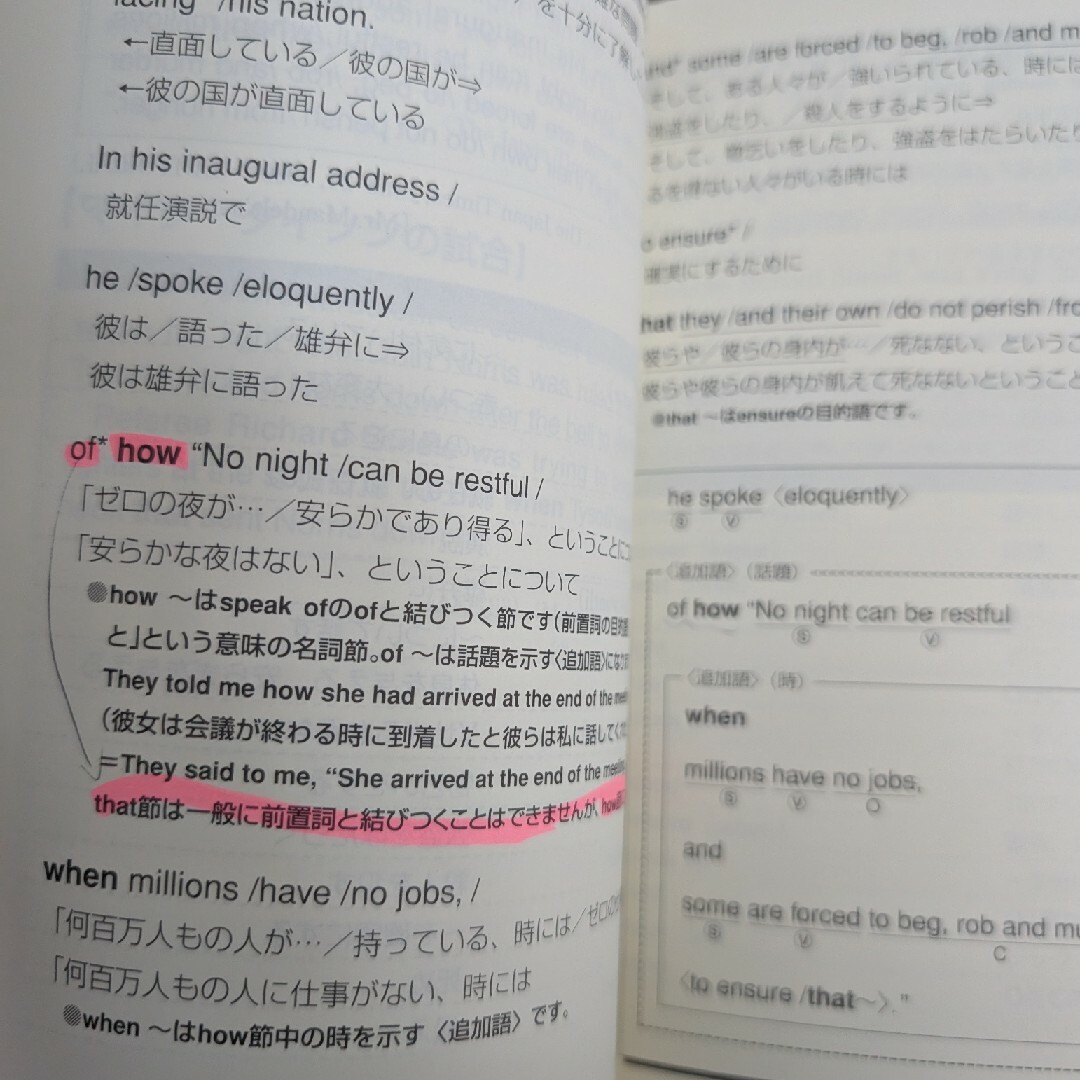 facing* /his nation.
←直面している／彼の国が⇒
←彼の国が直面している
を十分に了解し
In his inaugural address /
就任演説で
he /spoke /eloquently /
彼は／語った／雄弁に⇒
彼は雄弁に語った
of* how “No night /can be restful /
「ゼロの夜が…／安らかであり得る」、ということに
「安らかな夜はない」、ということについて
●how ～はspeak ofのofと結びつく節です(前置詞の目的
と」という意味の名詞節。of ～は話題を示す〈追加語〉に
They told me how she had arrived at the end of the
(彼女は会議が終わる時に到着したと彼らは私に話して
=They said to me, “She arrived at the end of the meeting
that節は一般に前置詞と結びつくことはできませんが、how
when millions /have /no jobs, /
「何百万人もの人が…／持っている、時には／ゼロの
「何百万人もの人に仕事がない、時には
●when ～はhow節中の時を示す〈追加語〉です。
some /are forced /to beg, /rob /and m
そして、ある人々が／強いられている、時には
強盗をしたり、／殺人をするように⇒
そして、物乞いをしたり、強盗をはたらいたり
るを得ない人々がいる時には
ensure* /
確実にするために
hat they /and their own /do not perish /fro
彼らや／彼らの身内が…／死なない、というこ
彼らや彼らの身内が飢えて死なないということ
●that ～はensureの目的語です。
he spoke 〈eloquently〉
S V
〈追加語〉(話題)
of how “No night can be restful
S V
〈追加語〉(時)
when
millions have no jobs,
S V O
and
some are forced to beg, rob and mu
S V C
〈to ensure /that～〉.”